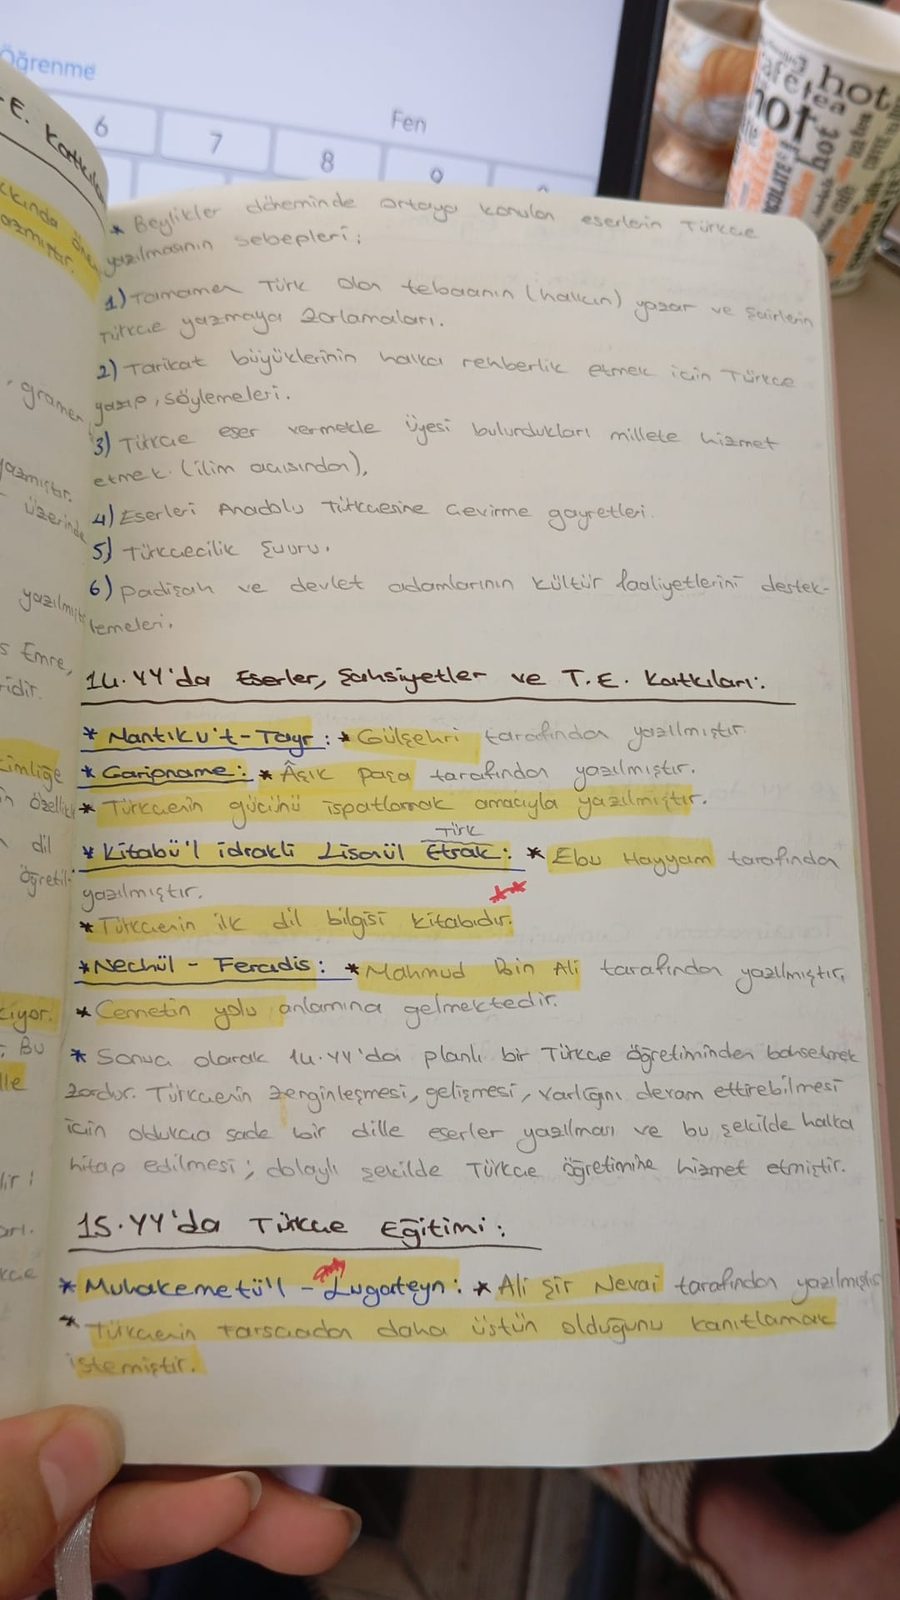 Öğrenme
6
7
8
9
Fen
hot
tea
hot
hot
E. Katkıları
hakkında
yazmıştır.
gramer
yazmıştır.
üzerinde
yazılmıştır
Emre,
ridir.
kimliğe
özellik
dil
öğretil
Bu
* Beylikler döneminde ortaya konulan eserlerin Türkçe
yazılmasının sebepleri;
1) Tamamen Türk olan tebaanın (halkın) yazar ve şairlerin
Türkçe yazmaya zorlamaları.
2) Tarikat büyüklerinin halka rehberlik etmek için Türkçe
yazıp, söylemeleri.
3) Türkçe eser vermekle üyesi bulundukları millete hizmet
etmek (ilim açısından),
4) Eserleri Anadolu Türkçesine çevirme gayretleri.
5) Türkçecilik Şuuru.
6) padişah ve devlet adamlarının kültür faaliyetlerini destek-
lemeleri.
14.YY'da Eserler, Şahsiyetler ve T.E. Katkıları:
* Mantıku't-Tayr: * Gülşehri tarafından yazılmıştır.
* Garipname: * Âşık paşa tarafından yazılmıştır.
* Türkçenin gücünü ispatlamak amacıyla yazılmıştır.
Türk
* Kitabü'l idrakli Lisanül Etrak: * Ebu Hayyam tarafından
yazılmıştır.
* Türkçenin ilk dil bilgisi kitabıdır. **
* Nechül - Feradis: * Mahmud Bin Ali tarafından yazılmıştır.
* Cennetin yolu anlamına gelmektedir.
* Sonuç olarak 14.YY'da planlı bir Türkçe öğretiminden bahsetmek
zordur. Türkçenin zenginleşmesi, gelişmesi, varlığını devam ettirebilmesi
için oldukça sade bir dille eserler yazılması ve bu şekilde halka
hitap edilmesi; dolaylı şekilde Türkçe öğretimine hizmet etmiştir.
15.YY'da Türkçe Eğitimi:
* Muhakemetü'l - Lugateyn: * Ali Şir Nevai tarafından yazılmıştır
* Türkçenin Farsçadan daha üstün olduğunu kanıtlamak
istemiştir.